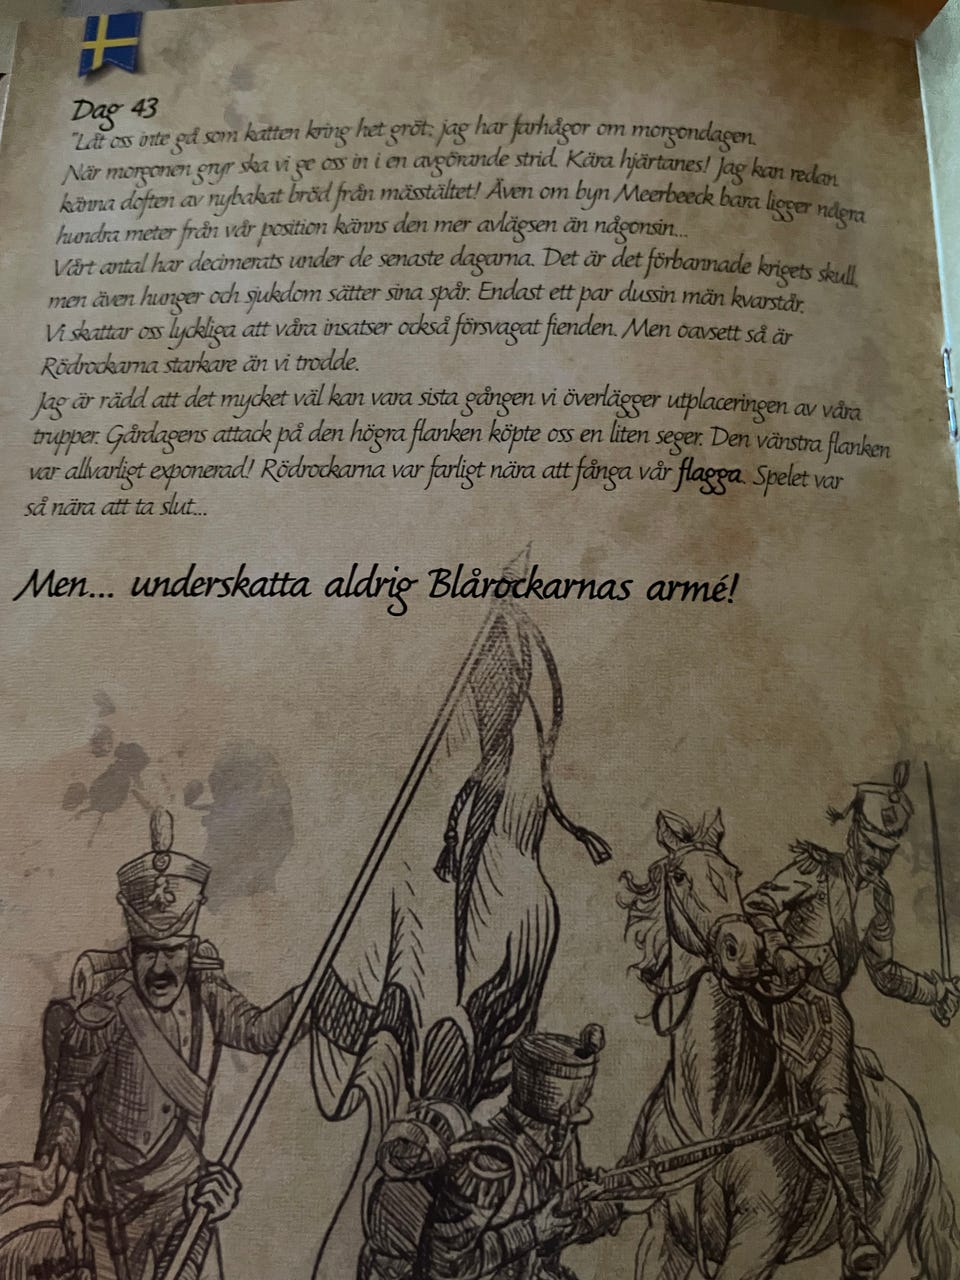 Dag 43
"Låt oss inte gå som katten kring het gröt; jag har farhågor om morgondagen.
När morgonen gryr ska vi ge oss in i en avgörande strid. Kära hjärtanes! Jag kan redan
känna doften av nybakat bröd från mässtältet! Även om byn Meerbeeck bara ligger några
hundra meter från vår position känns den mer avlägsen än någonsin...
Vårt antal har decimerats under de senaste dagarna. Det är det förbannade krigets skull,
men även hunger och sjukdom sätter sina spår. Endast ett par dussin män kvarstår.
Vi skattar oss lyckliga att våra insatser också försvagat fienden. Men oavsett så är
Rödrockarna starkare än vi trodde.
Jag är rädd att det mycket väl kan vara sista gången vi överlägger utplaceringen av våra
trupper. Gårdagens attack på den högra flanken köpte oss en liten seger. Den vänstra flanken
var allvarligt exponerad! Rödrockarna var farligt nära att fånga vår flagga. Spelet var
så nära att ta slut...
Men... underskatta aldrig Blårockarnas armé!